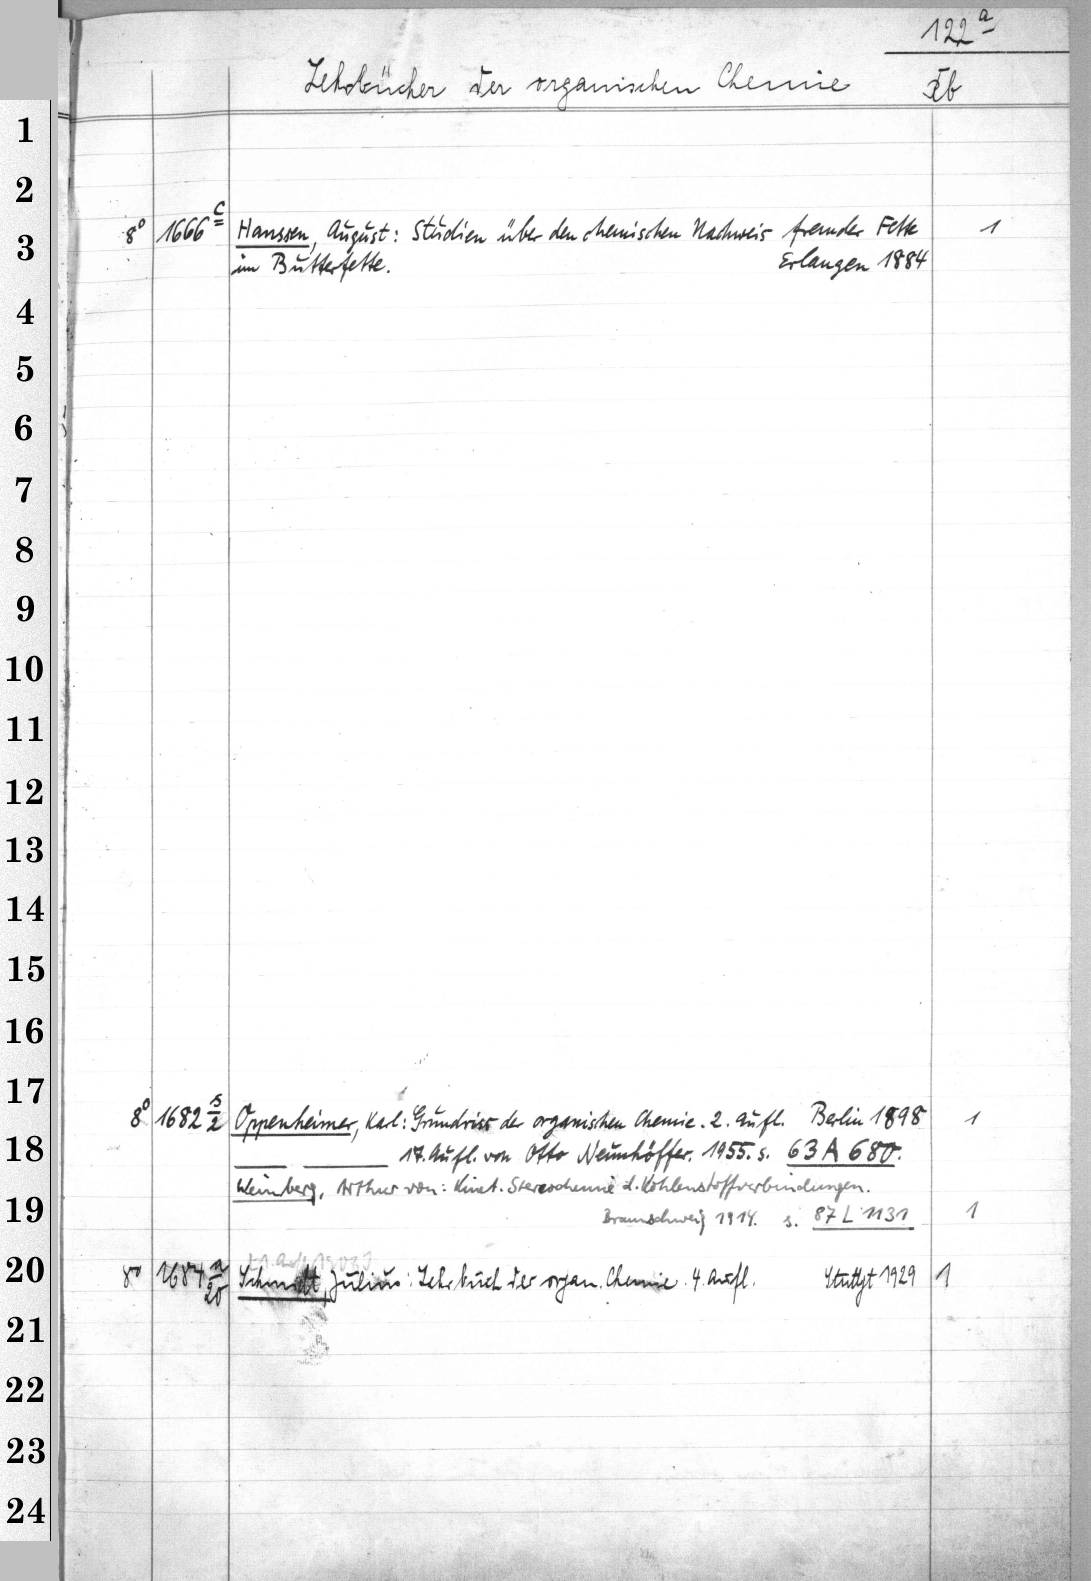 122 a
Lehrbücher der organischen Chemie Xb
1
2
8° 1666 c Hanssen, August: Studien über den chemischen Nachweis fremder Fette 1
3
im Butterfette. Erlangen 1884
4
5
6
7
8
9
10
11
12
13
14
15
16
17
8° 1682 s/2 Oppenheimer, Karl: Grundriss der organischen Chemie. 2. Aufl. Berlin 1898 1
18
17. Aufl. von Otto Neunhöffer. 1955. s. 63 A 680.
Weinberg, Arthur von: Kinet. Stereochemie d. Kohlenstoffverbindungen.
19
Braunschweig 1914. s. 87 L 1131 1
20
8° 1684 a/20 Schmidt, Julius: Lehrbuch der organ. Chemie. 4. Aufl. Stuttgt 1929 1
21
22
23
24